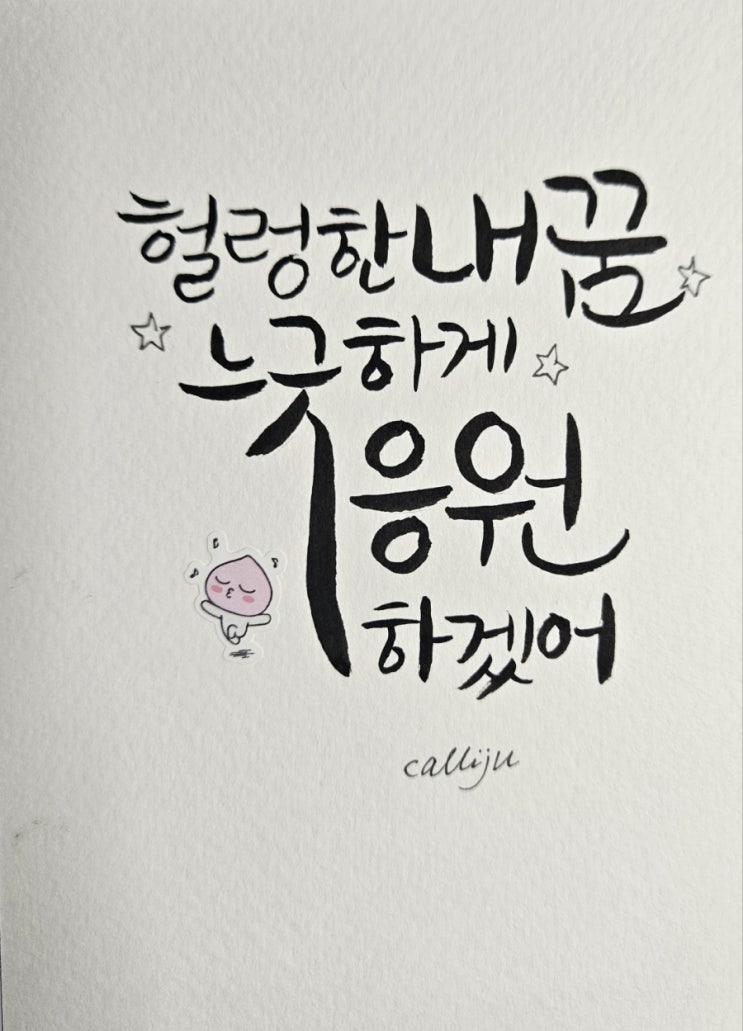 헐렁한 내 꿈
느긋하게
응원
하겠어
calliju